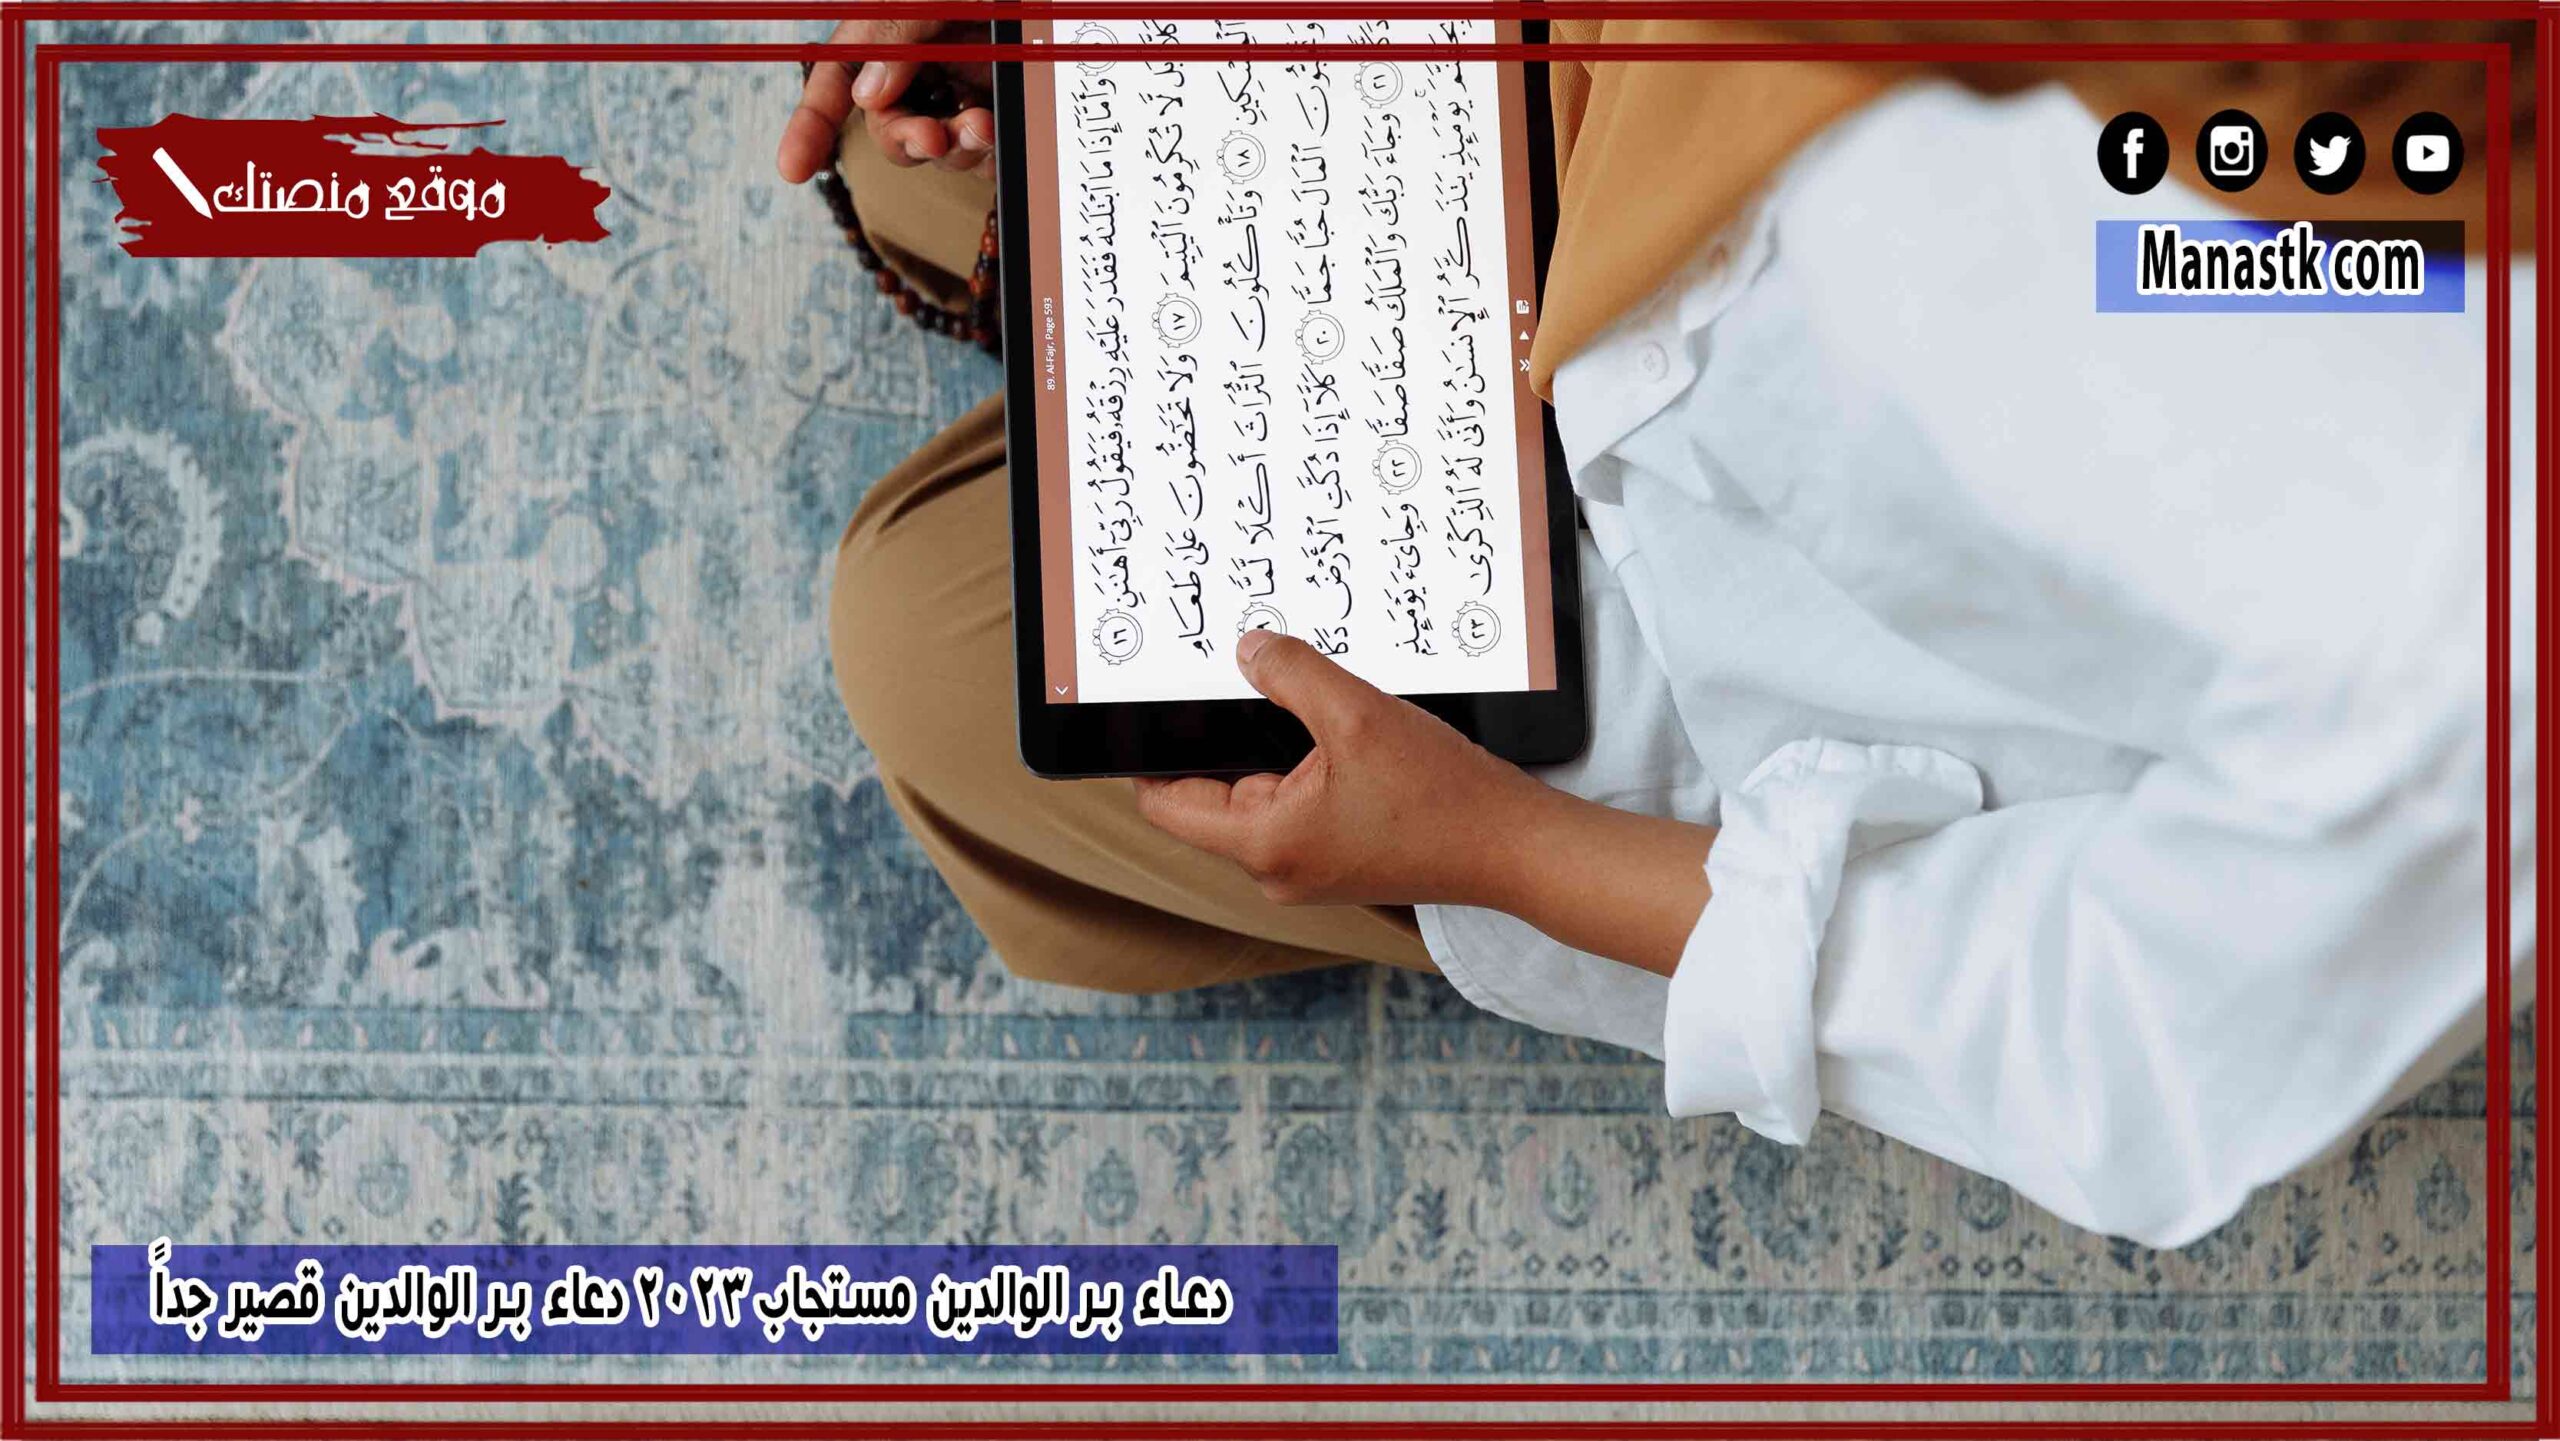 موقع منصتك
Manastk com
89. Al-Fajr, Page 593
وَأَمَّآ إِذَا مَا ٱبْتَلَىٰهُ فَقَدَرَ عَلَيْهِ رِزْقَهُۥ فَيَقُولُ رَبِّىٓ أَهَٰنَنِ ١٦
كَلَّا بَل لَّا تُكْرِمُونَ ٱلْيَتِيمَ ١٧ وَلَا تَحَٰٓضُّونَ عَلَىٰ طَعَامِ
ٱلْمِسْكِينِ ١٨ وَتَأْكُلُونَ ٱلتُّرَاثَ أَكْلًا لَّمًّا
وَتُحِبُّونَ ٱلْمَالَ حُبًّا جَمًّا ٢٠ كَلَّآ إِذَا دُكَّتِ ٱلْأَرْضُ دَكًّا
دَكًّا ٢١ وَجَآءَ رَبُّكَ وَٱلْمَلَكُ صَفًّا صَفًّا ٢٢ وَجِا۟ىٓءَ يَوْمَئِذٍۭ
بِجَهَنَّمَ يَوْمَئِذٍ يَتَذَكَّرُ ٱلْإِنسَٰنُ وَأَنَّىٰ لَهُ ٱلذِّكْرَىٰ ٢٣
دعاء بر الوالدين مستجاب ٢٠٢٣ دعاء بر الوالدين قصير جداً